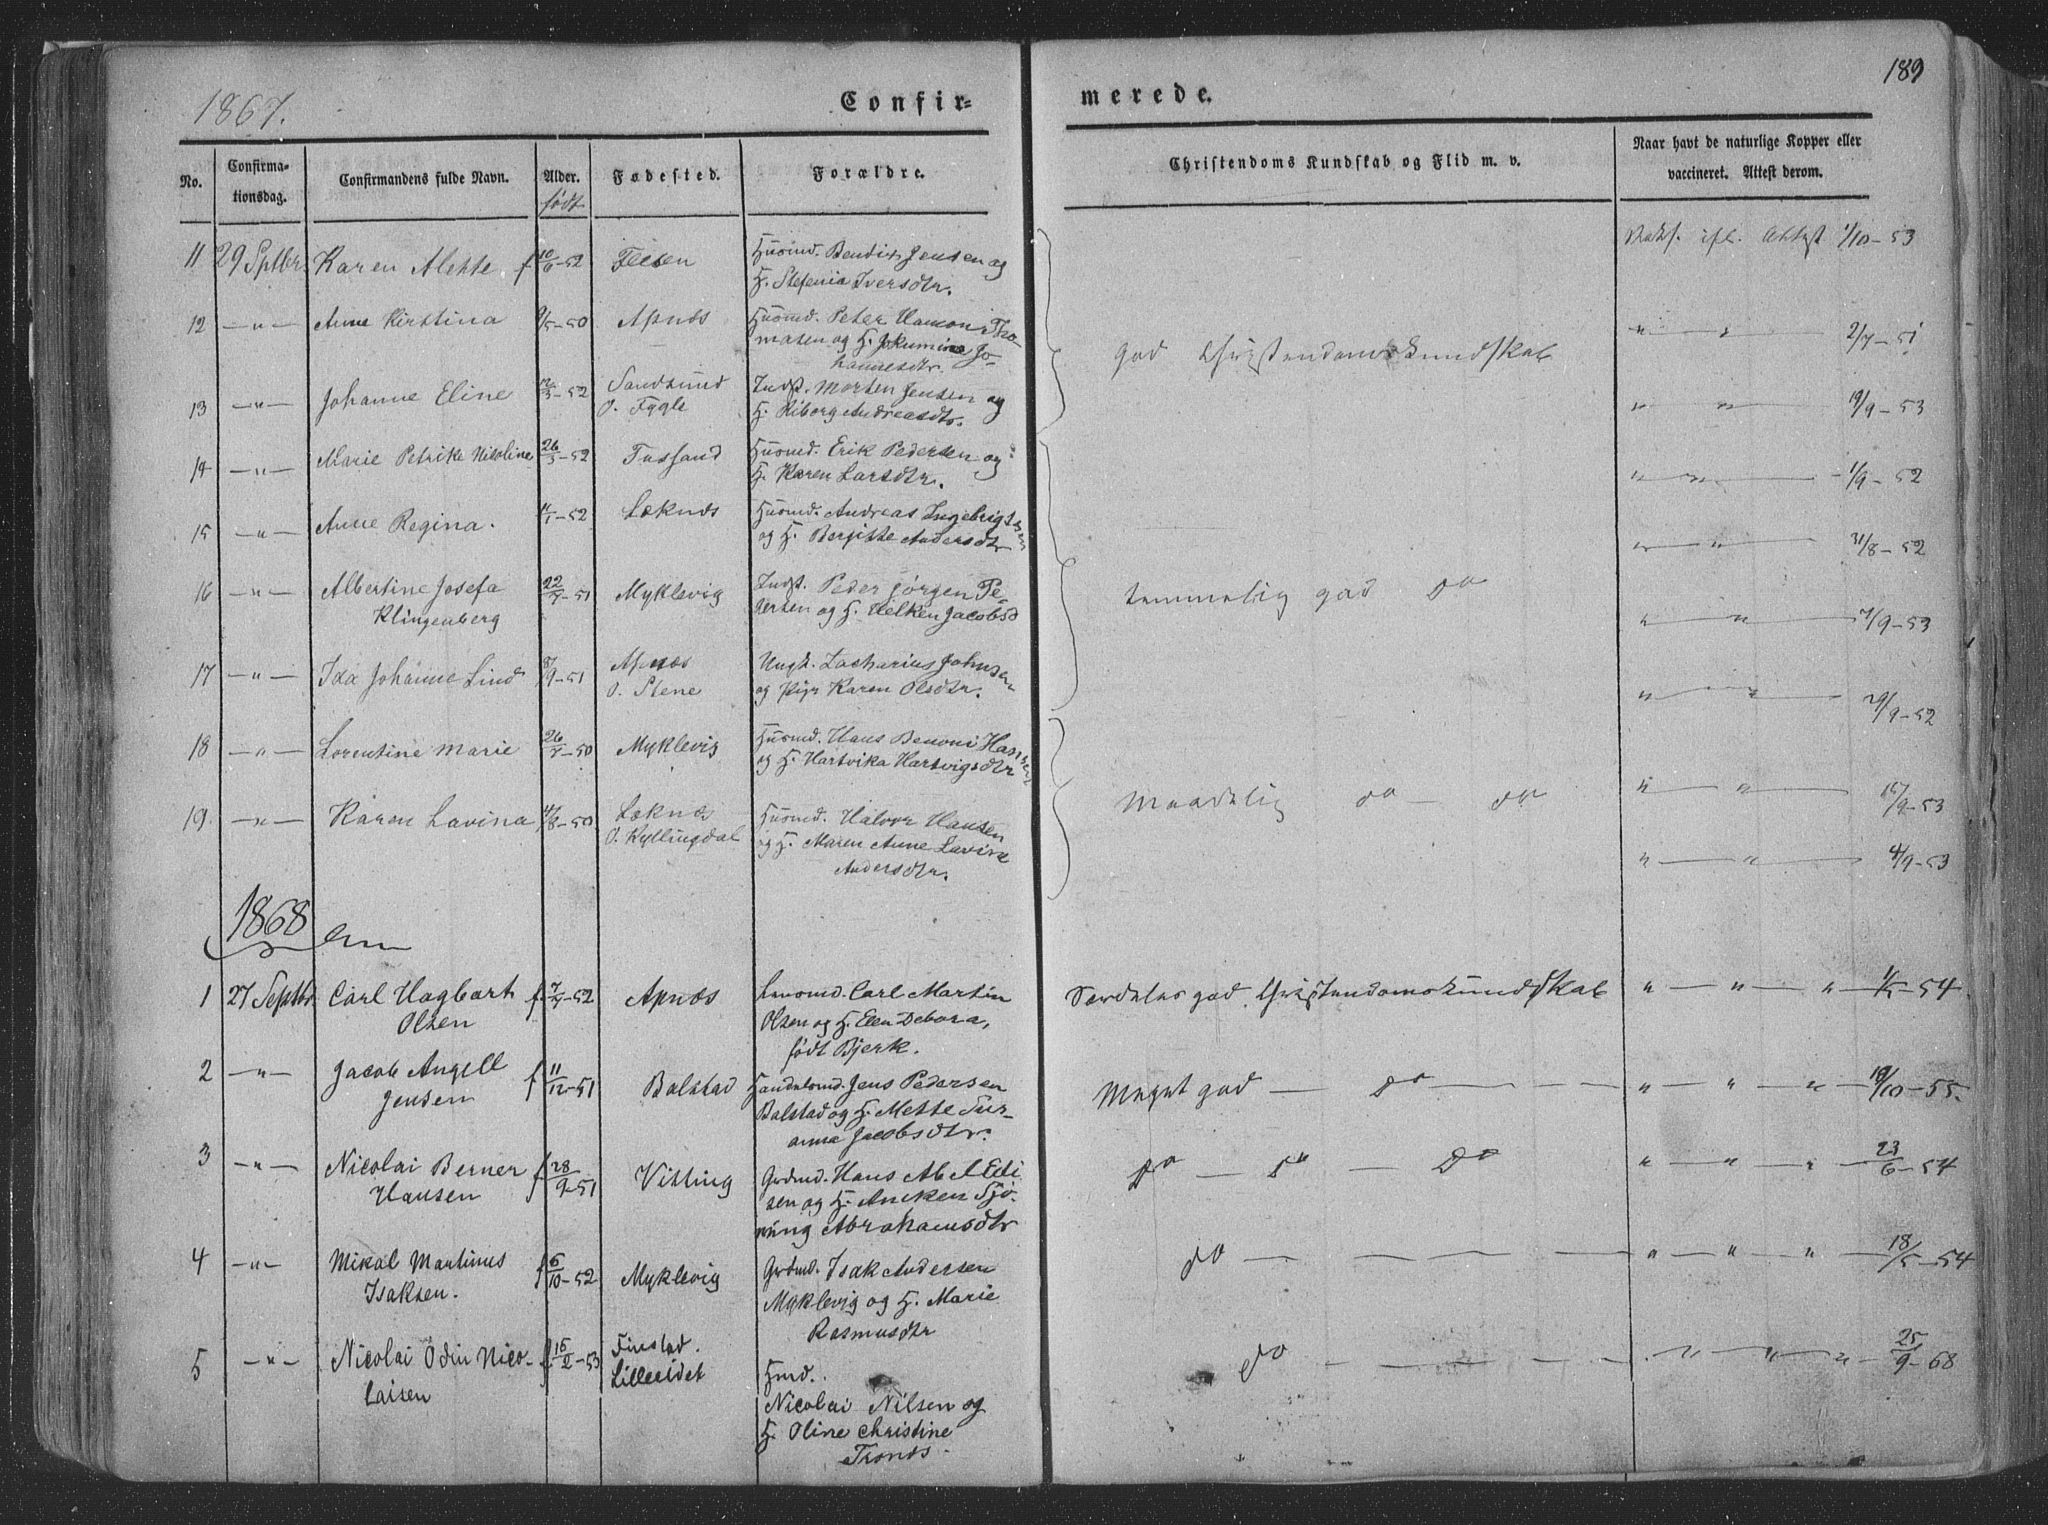 189
1867.
Confir=
merede.
No.
Confirma-
tionsdag.
Confirmandens fulde Navn.
Alder.
født
Fødested.
Forældre.
Christendoms Kundskab og Flid m. v.
Naar havt de naturlige Kopper eller
vaccineret. Attest derom.
11 29 Septbr. Karen Alette f 10/6-52
Husmd. Bendix Jensen og
H. Stefenia Iversdtr.
Attest 1/10-53
12 -"- Anne Kirstina 9/5-50 Apnæs
Husmd. Peter Hamon Tho-
masen og H. Jokumine Jo-
hannesdtr.
" " 2/7-51
God Christendomskundskab
13 -"- Johanne Eline 52 Sandsund
o. Fygle
Indst. Morten Jensen og
H. Riborg Andreasdtr.
" " 19/9-53
14 -"- Marie Petrike Nicoline 26/3-52 Tussand
Husmd. Erik Pedersen og
H. Karen Larsdtr.
" " 1/9-52
15 -"- Anne Regina. 52 Læknæs
Husmd. Andreas Ingebrigtsen
og H. Bergitte Andersdtr
" " 31/8-52
16 -"- Albertine Josefa
Klingenberg
22/7-51 Myklevig
Indst. Peder Jørgen Pe-
dersen og H. Helken Jacobsd
temmelig god do
" " 7/9-53
17 -"- Ida Johanne Lind 8/9-51 Apnæs
o. Stene
Ungk. Zacharius Johnsen
og Pige Karen Olsdtr.
" " 29/9-52
18 -"- Lorentine Marie 26/7-50 Myklevig
Husmd. Hans Benoni Hansen
og H. Hartvika Hartvigsdtr
" " 15/9-53
Maadelig do - do
19. -"- Karen Lavina 4/8-50 Læknæs
o. Kyllingdal
Husmd. Halvor Hansen
og H. Maren Anne Lavina
Andersdtr.
" " 4/9-53
1868
1 27 Septbr. Carl Hagbart
Olsen
f. 7/7-52 Apnæs
Lensmd. Carl Martin
Olsen og H. Elen Debora,
født Bjerk.
Særdeles god Christendomskundskab " " " 1/5-54
2 -"- Jacob Angell
Jensen
f 11/12-51 Balstad
Handelsmd. Jens Pedersen
Balstad og H. Mette Sus-
anna Jacobsdtr.
Meget god - Do - " " " 18/10-55.
3 -"- Nicolai Berner
Hansen
f 28/9-51 Vitting
Grdmd. Hans Abel Edi
sen og H. Aniken Sjø-
ning Abrahamsdtr
Do - Do - Do " " " 23/6-54
4 -"- Mikal Martinus
Isaksen.
f 6/10-52 Myklevig
Grdmd. Isak Andersen
Myklevig og H. Marie
Rasmusdtr
do - " " " 18/5-54
5 -"- Nicolai Odin Nico-
laisen
f 15/2-53 Finstad.
Lilleeidet
Hmd.
Nicolai Nilsen og
H. Oline Christine
Tronds.
do - " " " 25/9-68